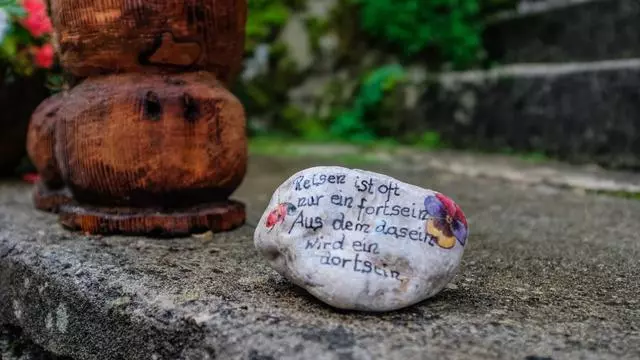 Reisen ist oft
nur ein fortsein
Aus dem dasein
wird ein
dortsein